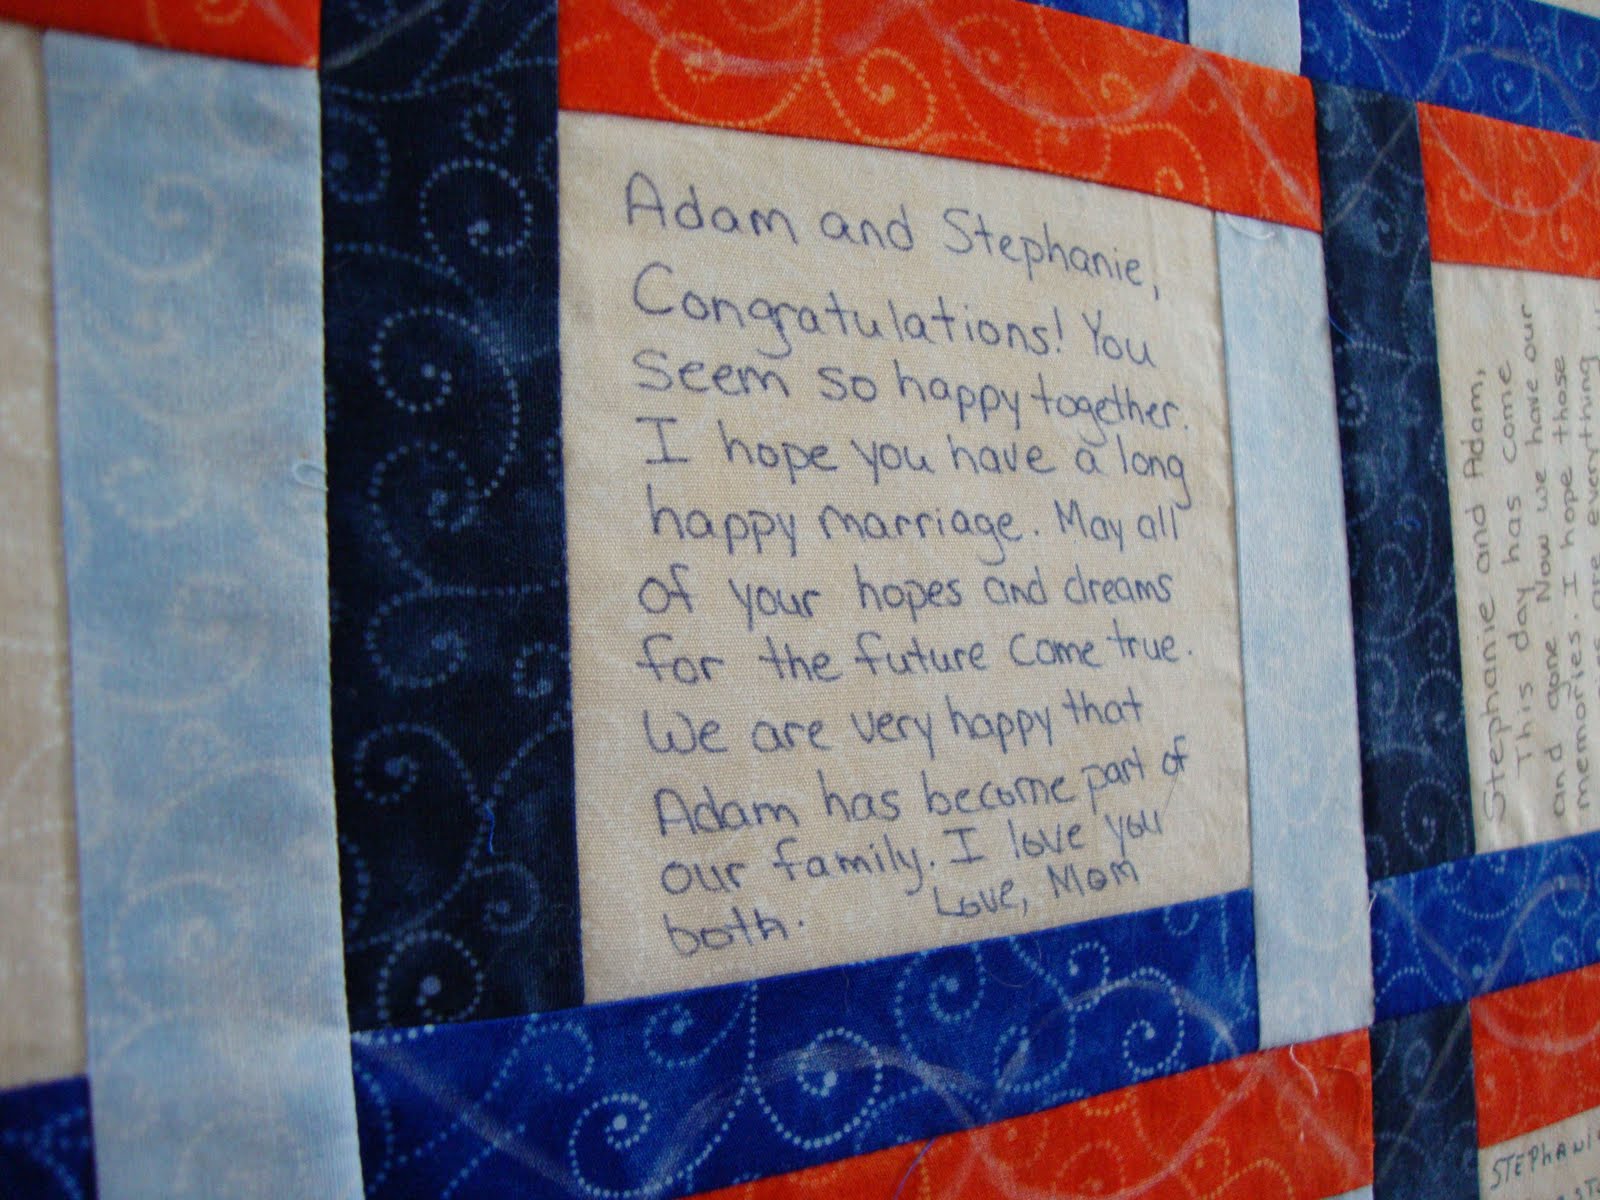 Adam and Stephanie,
Congratulations! You
seem so happy together.
I hope you have a long
happy marriage. May all
of your hopes and dreams
for the future come true.
We are very happy that
Adam has become part of
our family. I love you
both. Love, Mom
Stephanie and Adam,
This day has come
and gone. Now we have our
memories. I hope those
are everything
STEPHANIE